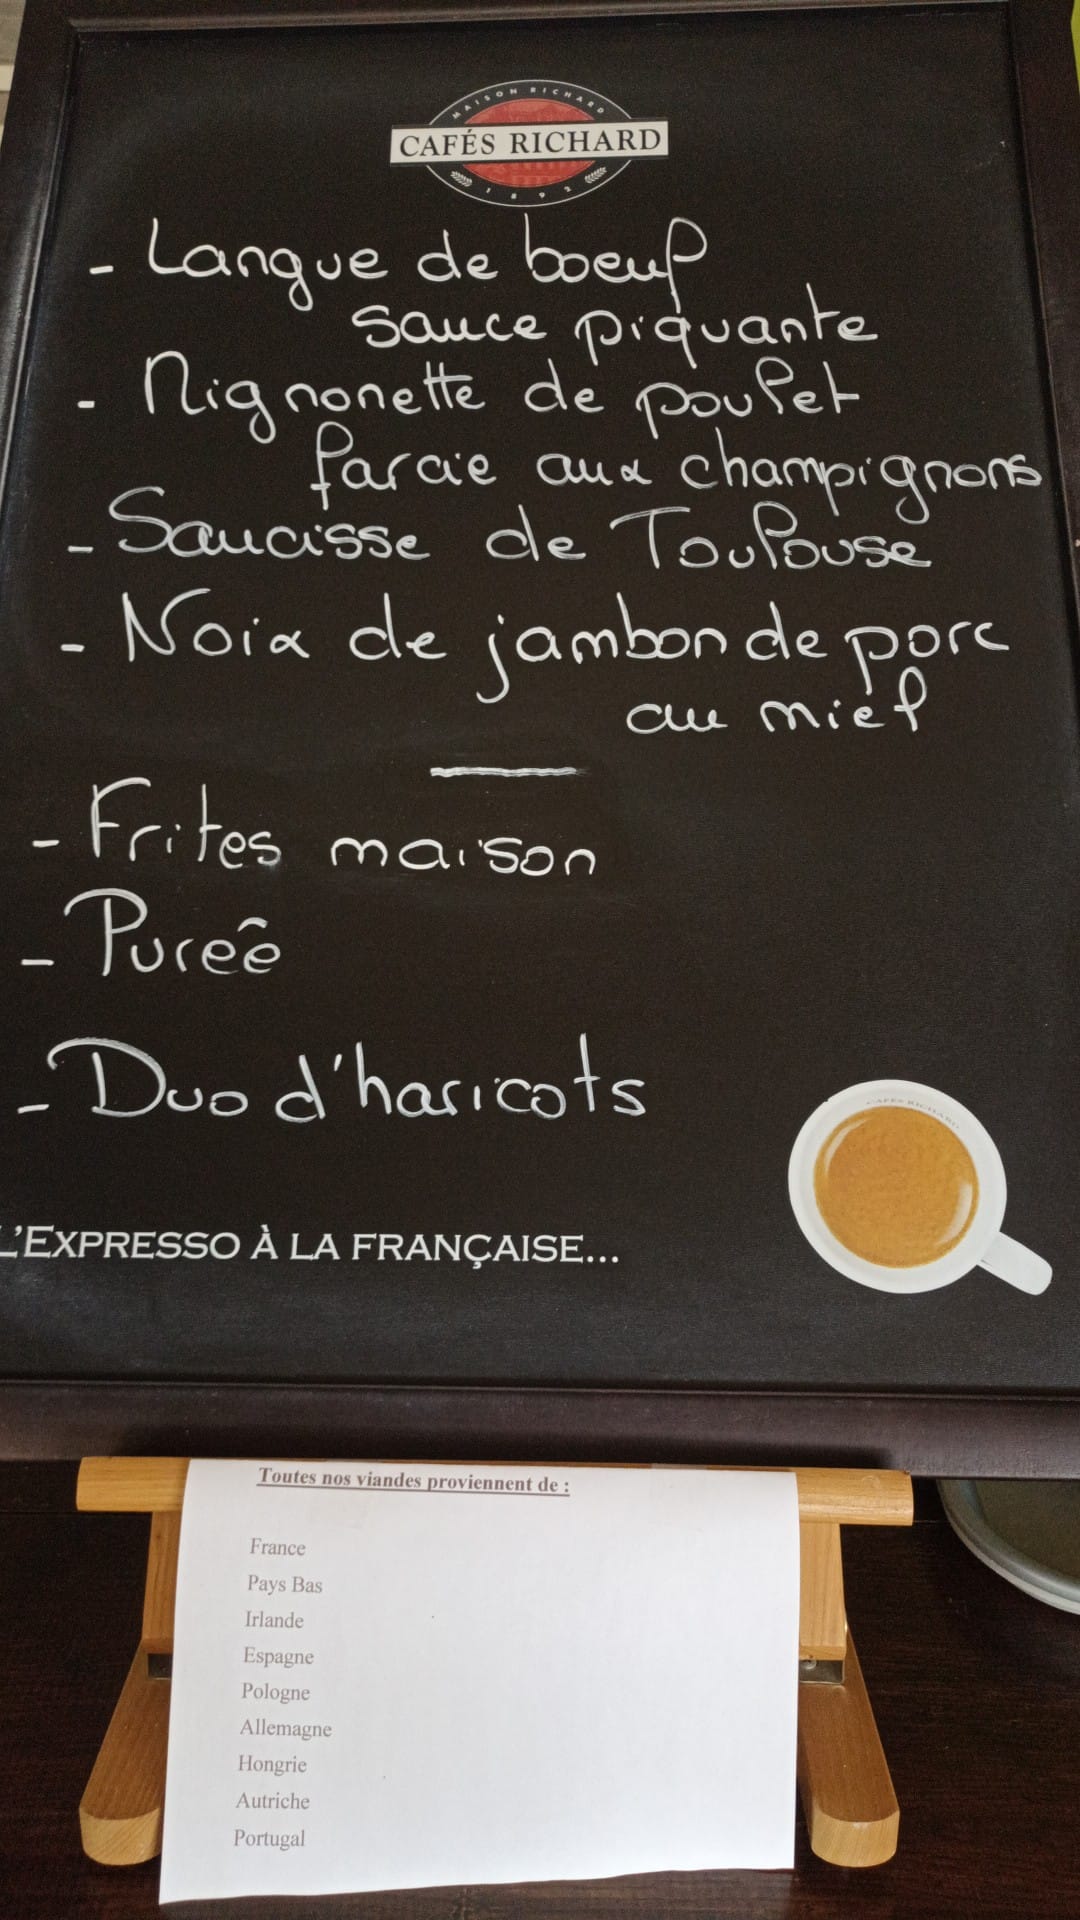 MAISON RICHARD
CAFÉS RICHARD
1892
- Langue de boeuf
sauce piquante
- Mignonette de poulet
farcie aux champignons
- Saucisse de Toulouse
- Noix de jambon de porc
au miel
- Frites maison
- Pureê
- Duo d'haricots
CAFÉS RICHARD
L'EXPRESSO À LA FRANÇAISE...
Toutes nos viandes proviennent de :
France
Pays Bas
Irlande
Espagne
Pologne
Allemagne
Hongrie
Autriche
Portugal